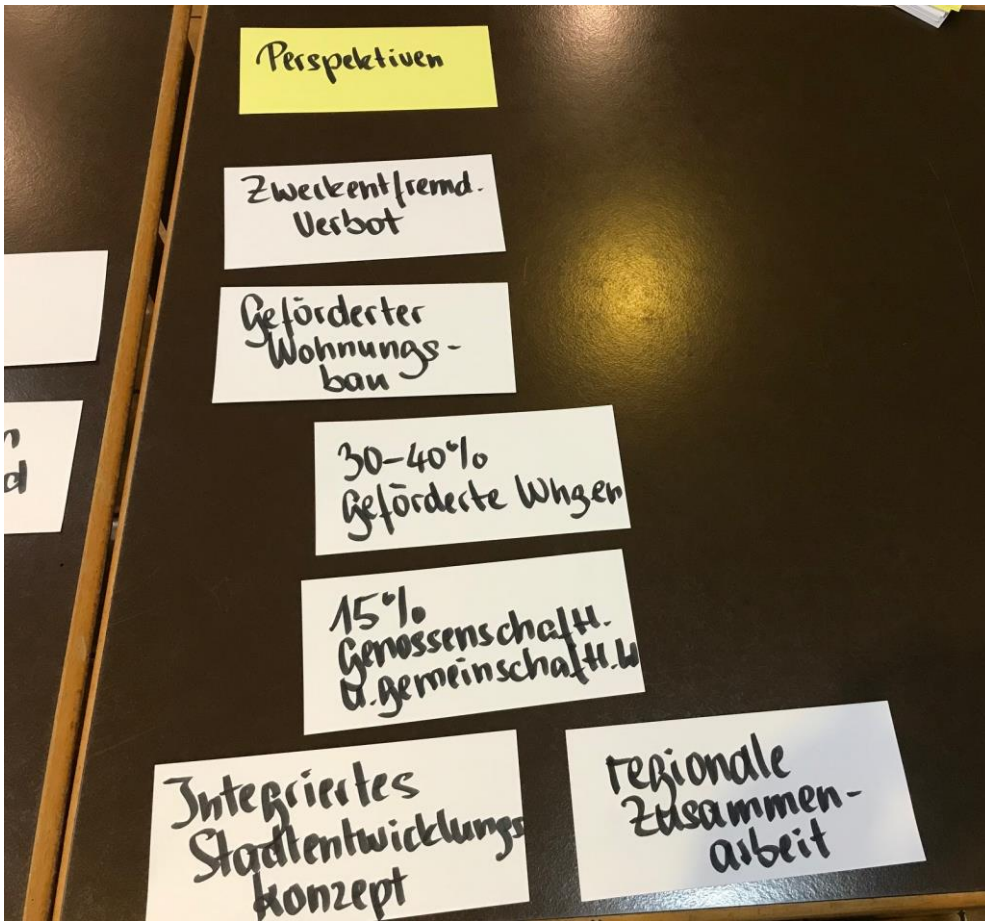 Perspektiven
Zweckentfremd.
Verbot
Geförderter
Wohnungs-
bau
30-40%
geförderte Whgen
15%
Genossenschaftl.
u. gemeinschaftl. W
Integriertes
Stadtentwicklungs
konzept
regionale
Zusammen-
arbeit
d